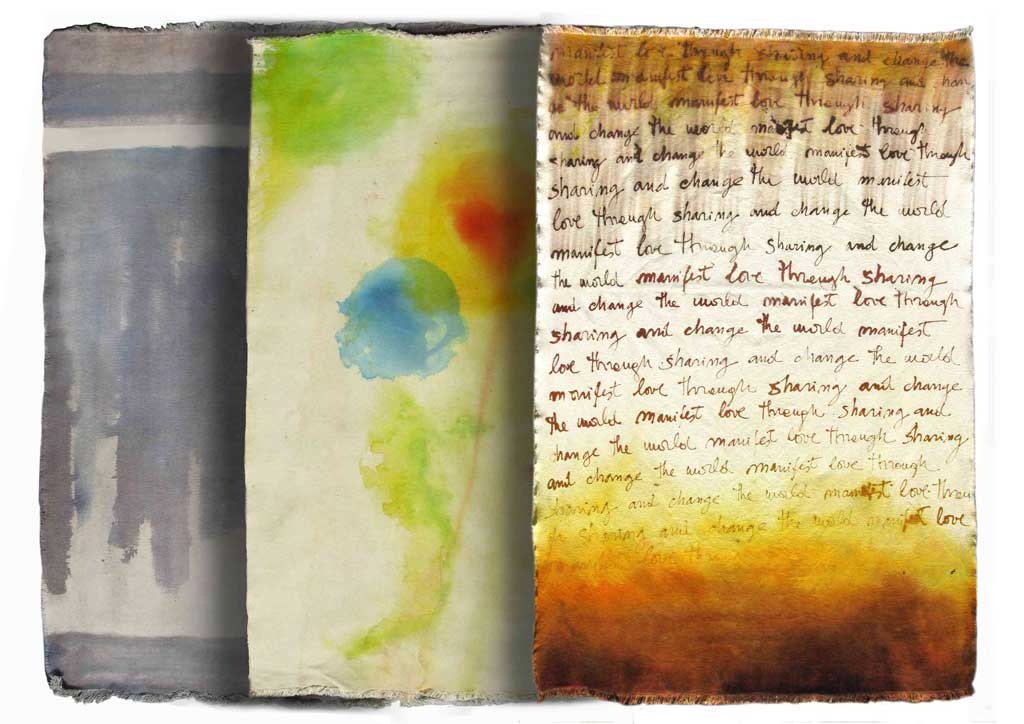 manifest love through sharing and change the
world manifest love through sharing and chan
ge the world manifest love through sharing
and change the world manifest love through
sharing and change the world manifest love through
sharing and change the world manifest
love through sharing and change the world
manifest love through sharing and change
the world manifest love through sharing
and change the world manifest love through
sharing and change the world manifest
love through sharing and change the world
manifest love through sharing and change
the world manifest love through sharing and
change the world manifest love through sharing
and change the world manifest love through
sharing and change the world manifest love throu
gh sharing and change the world manifest love
love thro